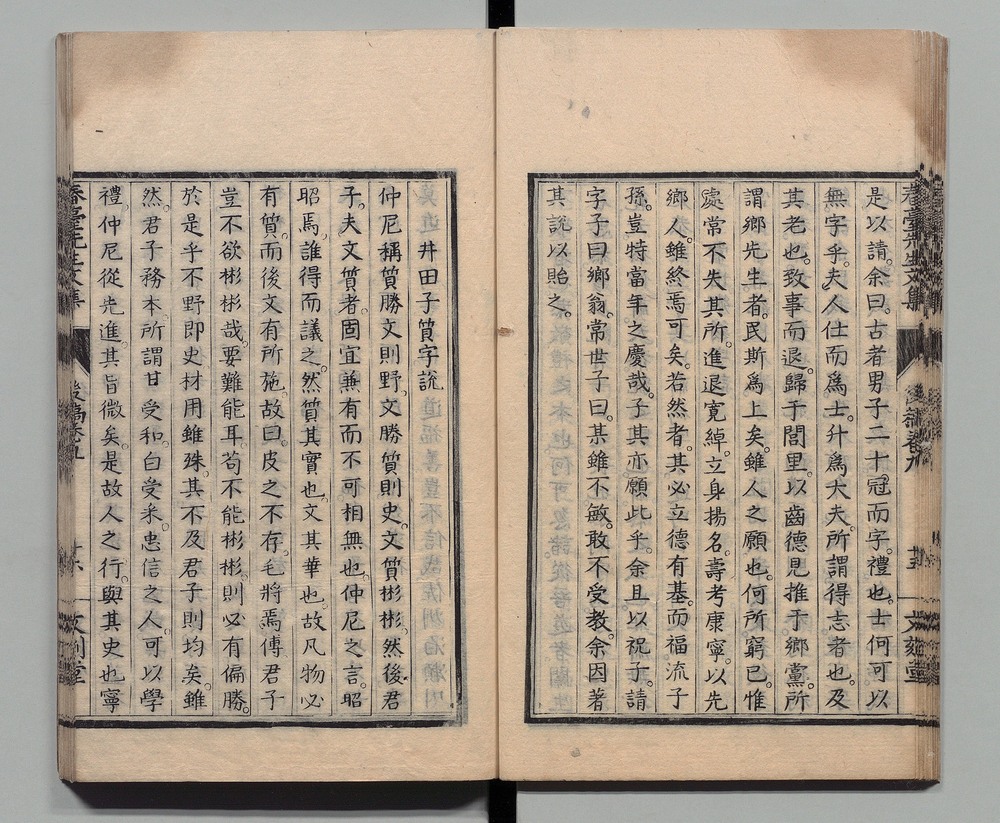 是以請。余曰。古者男子二十冠而字。禮也。士何可以
無字乎。夫人仕而爲士。升爲大夫。所謂得志者也。及
其老也。致事而退。歸于閭里。以齒德見推于鄉黨。所
謂鄉先生者。民斯爲上矣。雖人之願也。何所窮已。惟
處常不失其所。進退寛綽。立身揚名。壽考康寧。以先
鄉人。雖終焉可矣。若然者。其必立德有基。而福流子
孫。豈特當年之慶哉。子其亦願此乎。余且以祝子。請
字子曰鄉翁。常世子曰。某雖不敏。敢不受教。余因著
其說以貽之。
井田子質字說
仲尼稱質勝文則野。文勝質則史。文質彬彬。然後君
子。夫文質者。固宜兼有而不可相無也。仲尼之言。昭
昭焉。誰得而議之。然質其實也。文其華也。故凡物必
有質。而後文有所施。故曰。皮之不存。毛將焉傅。君子
豈不欲彬彬哉。要難能耳。苟不能彬彬。則必有偏勝。
於是乎不野即史。材用雖殊。其不及君子則均矣。雖
然。君子務本。所謂甘受和。白受采。忠信之人。可以學
禮。仲尼從先進。其旨微矣。是故人之行。與其史也寧
春臺先生文集
後稿卷九
文刻堂